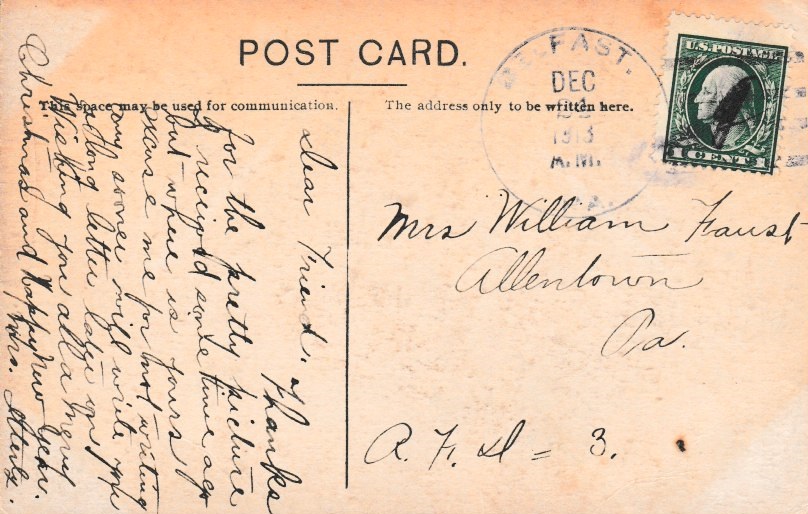 POST CARD.
This space may be used for communication.
The address only to be written here.
BELFAST.
DEC
1913
A.M.
PA.
U.S. POSTAGE
1 CENT 1
Dear Friend. Thanks
for the pretty picture
I received some time ago
but where is yours,
excuse me for not writing
any sooner will write you
a long letter later on,
Wishing you all a Merry
Christmas and Happy New Year.
Mrs.
Mrs William Faust
Allentown
Pa.
R. F. D = 3.